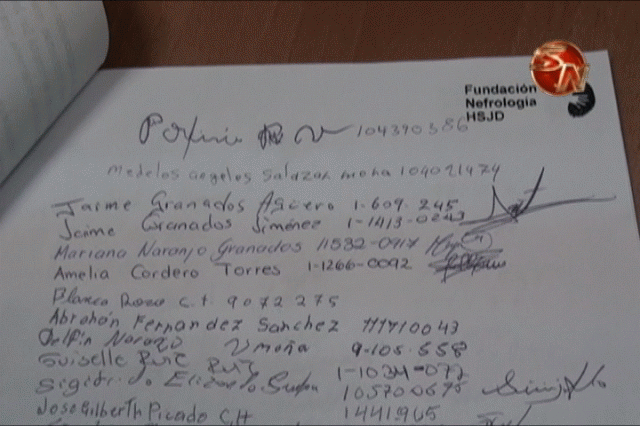 STN
Fundación
Nefrología
HSJD
Porfirio 104390386
medelos angeles Salazar mora 104021474
Jaime Granados Agüero 1-609.245
Jaime Granados Jiménez 1-1413-0243
Mariana Naranjo Granados 11582-0917
Amelia Cordero Torres 1-1266-0092
Blanca Rosa C.t. 9072275
Abrahán Fernandez Sanchez 111710043
Delfín Naranjo Umaña 9-105.558
Guiselle Ruiz Ruiz 1-1034-077
Elizondo 105700695
Jose Gilberth Picado C.H 1441965